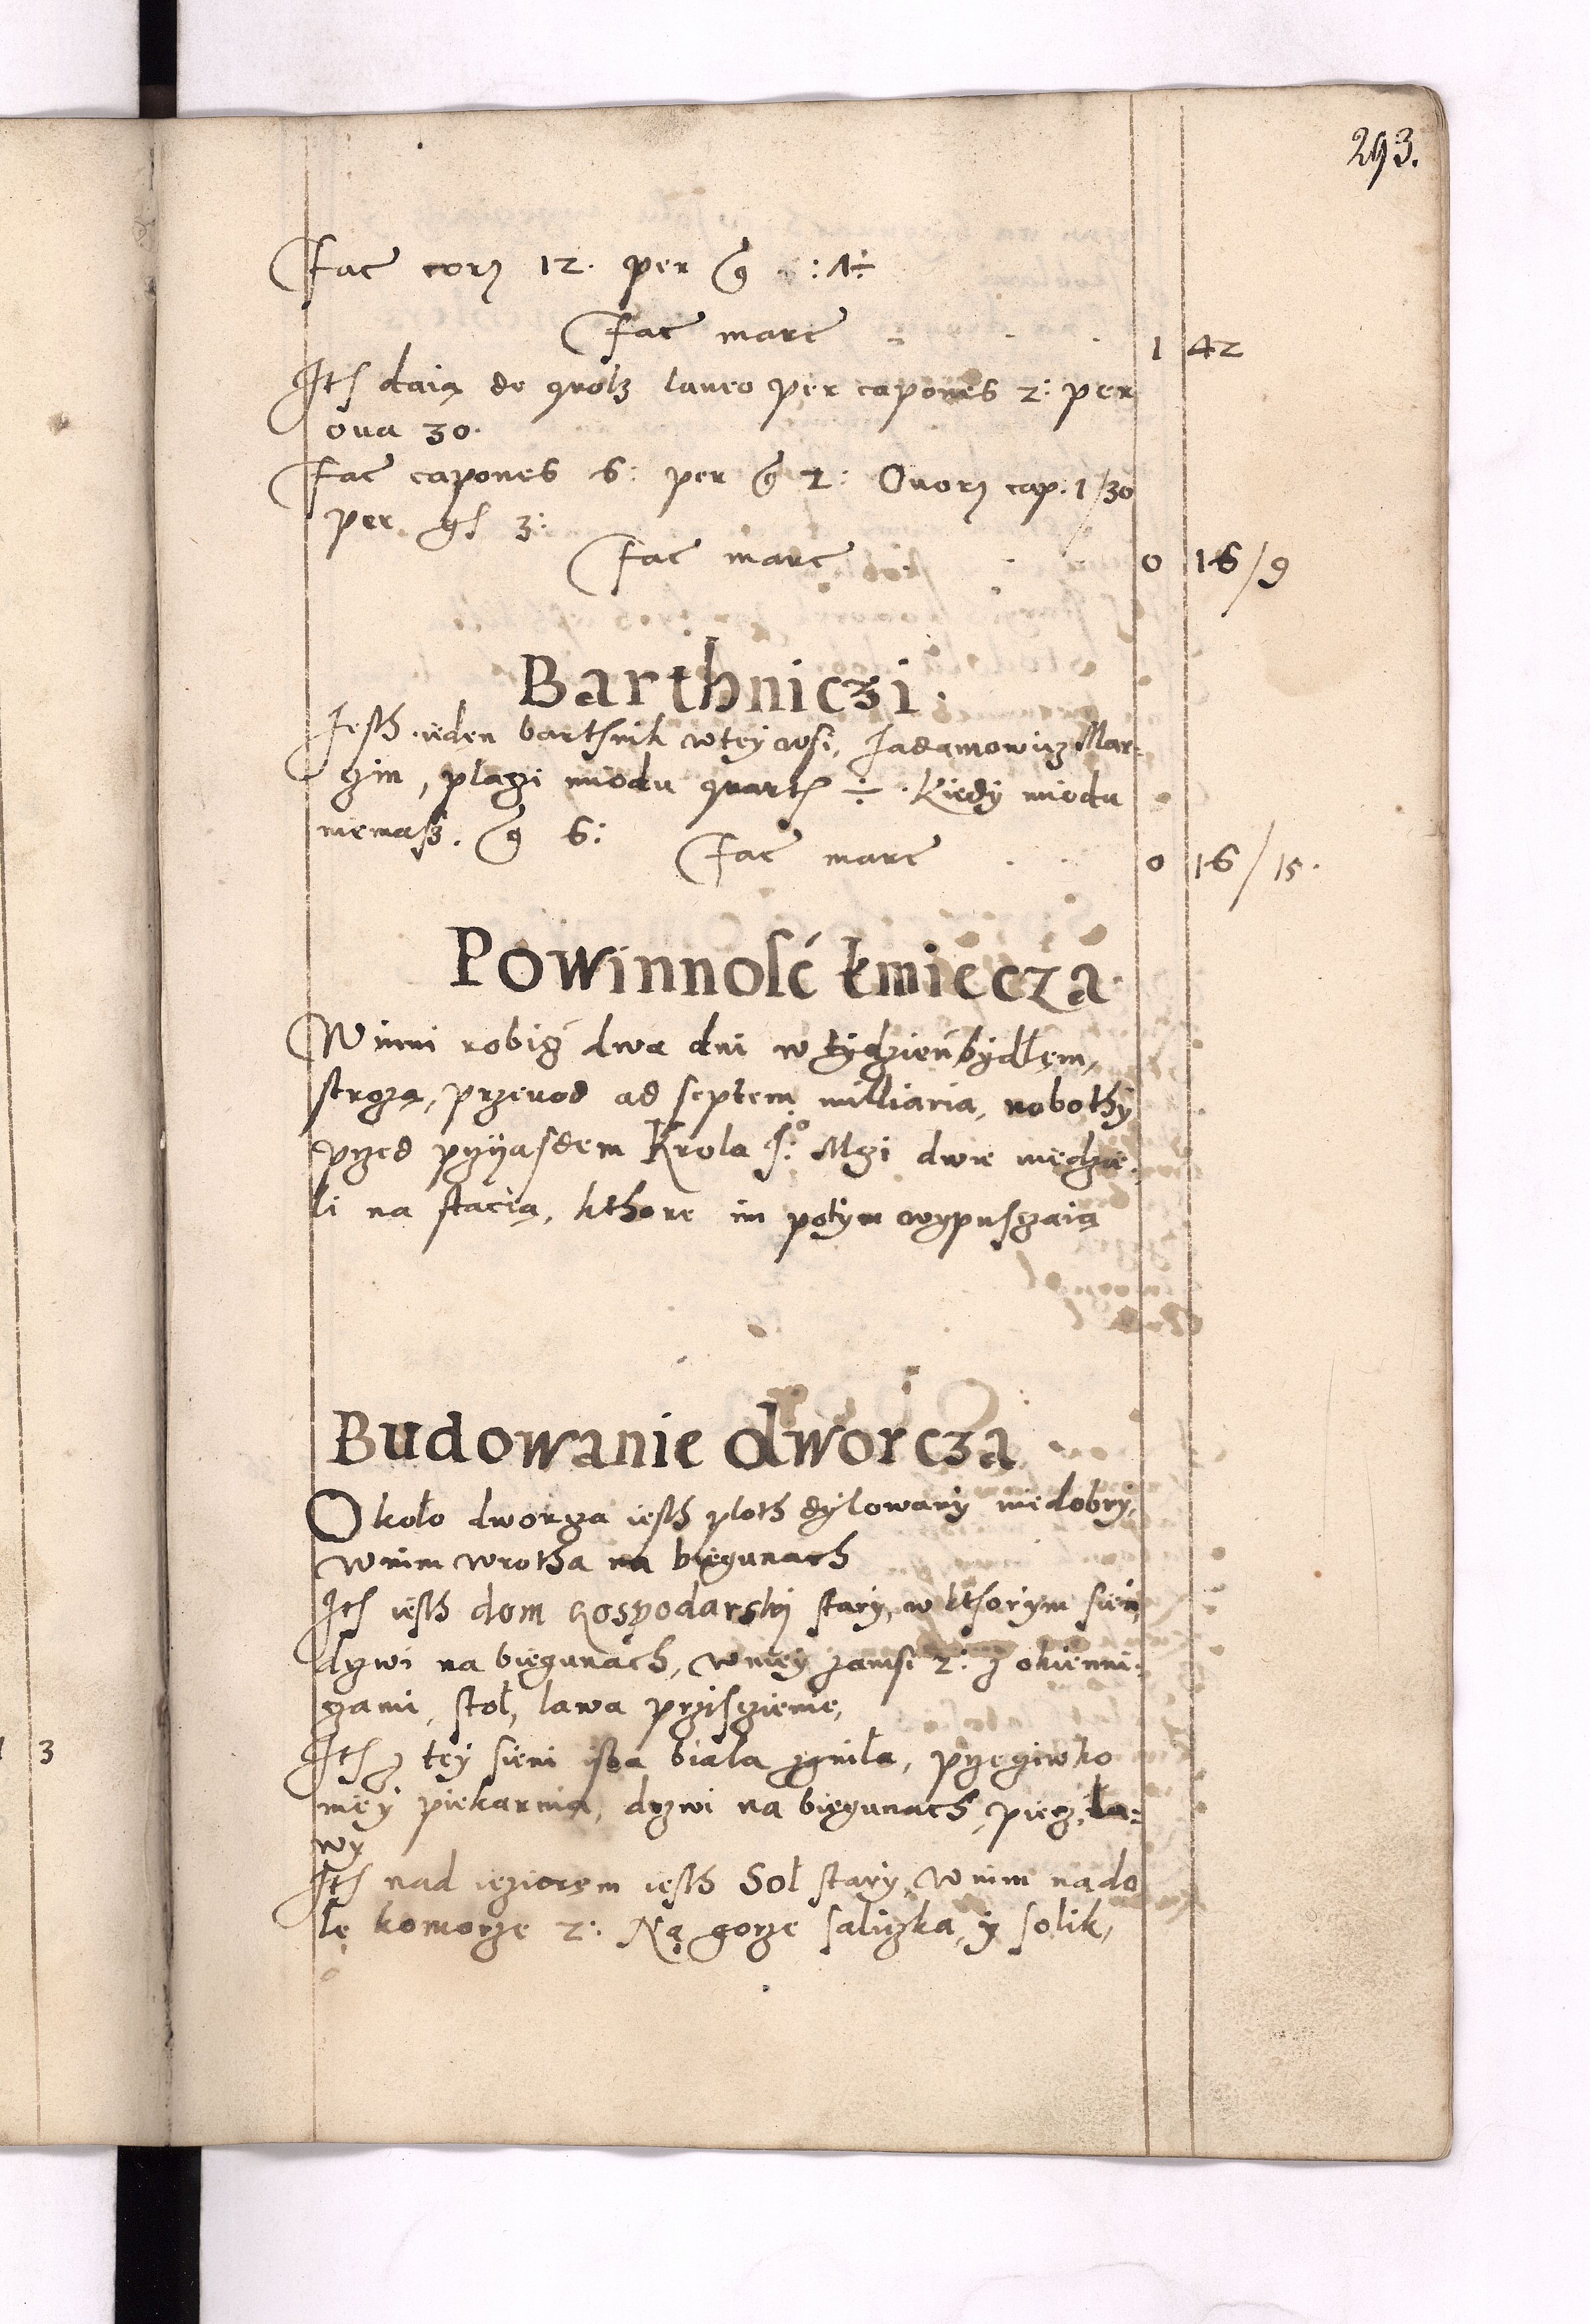 293.
Fac cor[um] 12. per g : 1÷
Fac marc 1 42
It[em] daią de quol[ibet] laneo per capones 2: per
oua 30.
Fac capones 6: per g 2: Ouor[um] cap. 1/30
per gs 3:
Fac marc 0 16/9
Barthniczi.
Jesth ieden barthnik wtey wsi, Jadamowicz Mar-
czin, placzi miodu quart ÷ . Kiedy miodu
niemasz. g 6:
Fac marc 0 16/15.
Powinność kmiecza
Winni robicz dwa dni w tydzień bydłem,
stroza, przeuod ad septem milliaria, robothy
przed przyiasdem Krola J:° Mczi dwie niedzie-
li na stacią, kthore im potym wypusczaią
Budowanie dworcza
Około dworcza iesth płoth dylowany niedobry,
wnim wrotha na biegunach
It[em] iesth dom gospodarsky stary, w kthorym sień,
drzwi na biegunach, wniey 2: z okienni-
czami, stoł, lawa przisczienie,
It[em] z tey sieni isba biała zgniła, przeciwko
niey piekarnia, drzwi na biegunach, piecz, ła-
wy
It[em] nad ieziorem iesth Soł stary, wnim nado
le komorze 2: Na gorze saliczka, y solik,
3